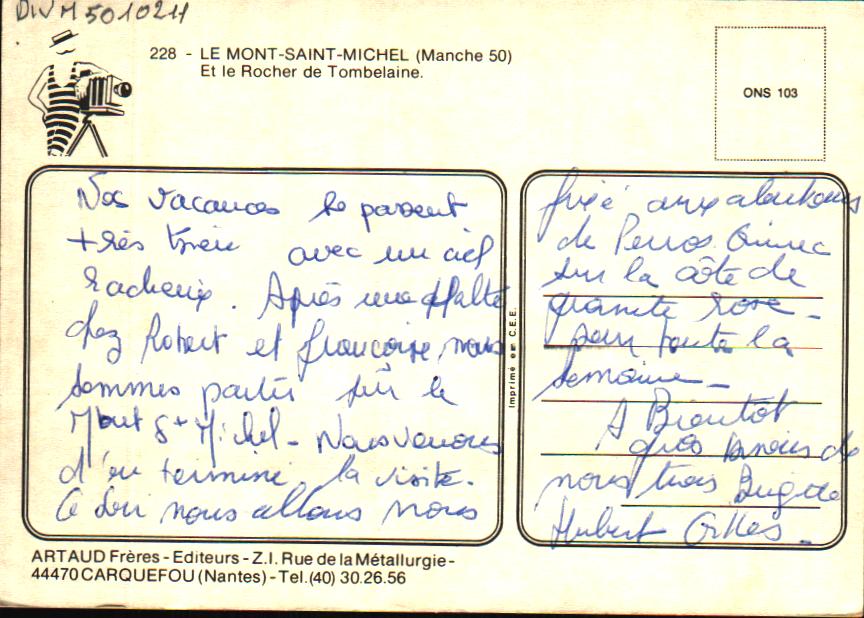 DIVM5010211
228 - LE MONT-SAINT-MICHEL (Manche 50)
Et le Rocher de Tombelaine.
ONS 103
Nos vacances se passent
très bien avec un ciel
radieux. Après une halte
chez Robert et françoise, nous
sommes partis sur le
Mont St Michel - Nous venons
d'en terminé la visite.
Ce soir nous allons nous
Imprimé en C.E.E.
fixé aux alentours
de Perros Guirec
sur la côte de
granite rose -
pour toute la
semaine -
A Bientôt
gros bisous de
nous trois Brigitte
Hubert Gilles -
ARTAUD Frères - Editeurs - Z.I. Rue de la Métallurgie -
44470 CARQUEFOU (Nantes) - Tel. (40) 30.26.56